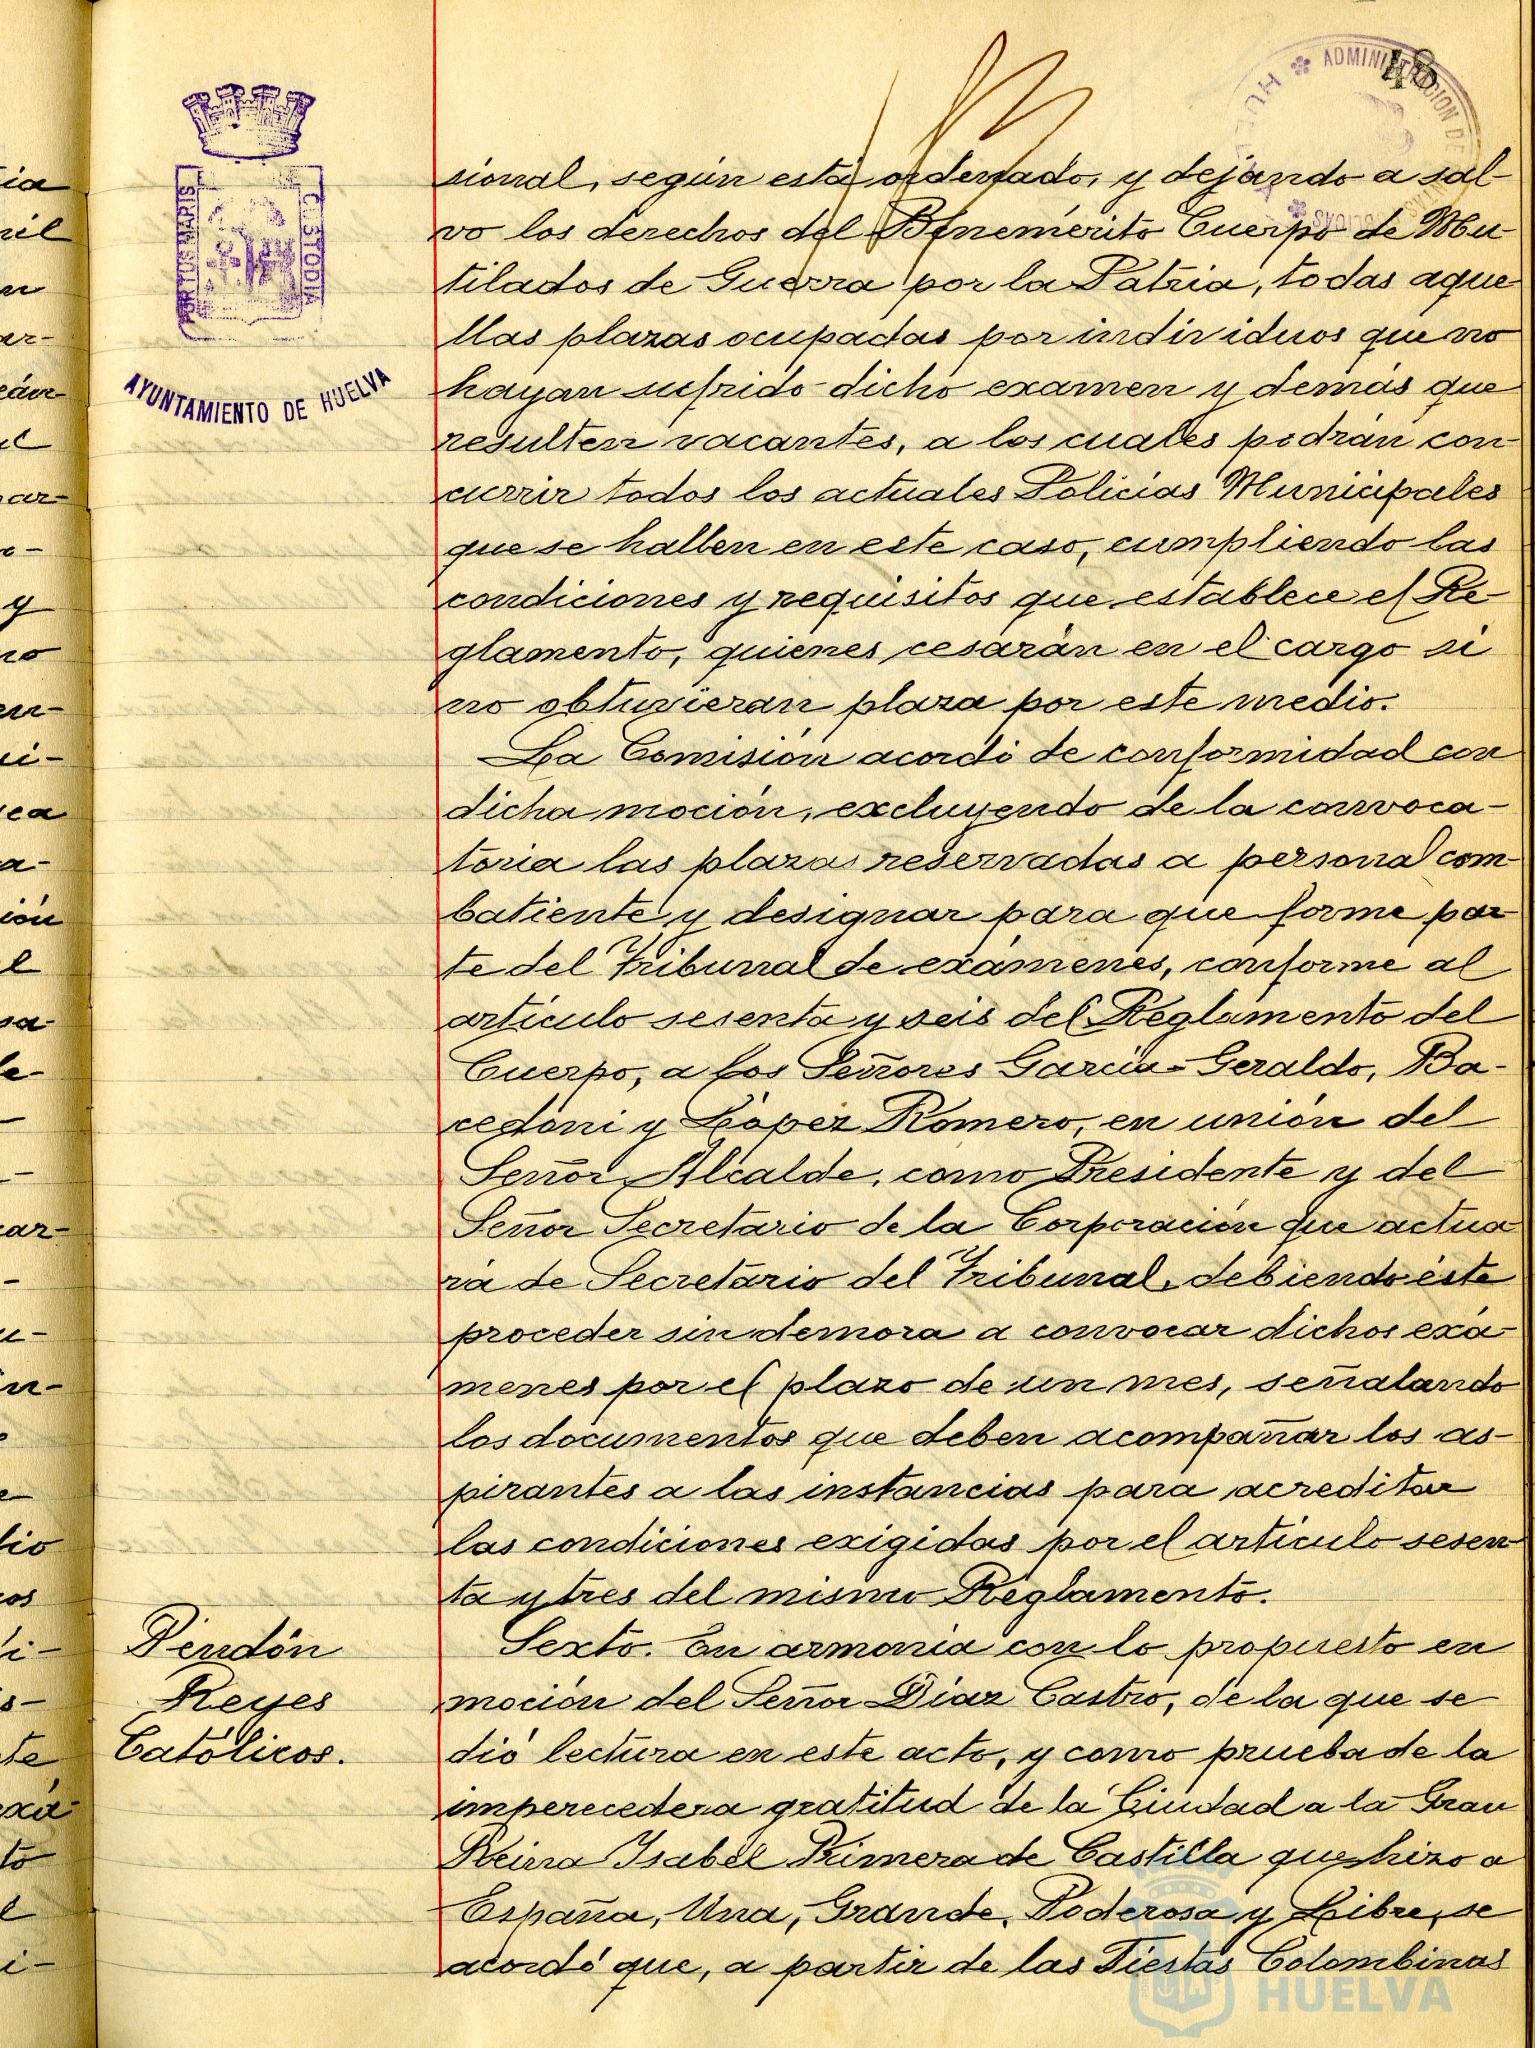 48
ADMINISTRACION DE
HUELVA
PORTUS MARIS
CUSTODIA
AYUNTAMIENTO DE HUELVA
sional, según está ordenado, y dejando a sal-
vo los derechos del Benemérito Cuerpo de Mu-
tilados de Guerra por la Patria, todas aque-
llas plazas ocupadas por individuos que no
hayan sufrido dicho examen y demás que
resulten vacantes, a los cuales podrán con-
currir todos los actuales Policías Municipales
que se hallen en este caso, cumpliendo las
condiciones y requisitos que establece el Re-
glamento, quienes cesarán en el cargo si
no obtuvieran plaza por este medio.
La Comisión acordó de conformidad con
dicha moción, excluyendo de la convoca-
toria las plazas reservadas a personal com-
batiente y designar para que forme par-
te del Tribunal de exámenes, conforme al
artículo sesenta y seis del Reglamento del
Cuerpo, a los Señores García-Geraldo, Ba-
cedóni y López Romero, en unión del
Señor Alcalde, como Presidente y del
Señor Secretario de la Corporación que actua-
rá de Secretario del Tribunal, debiendo éste
proceder sin demora a convocar dichos exá-
menes por el plazo de un mes, señalando
los documentos que deben acompañar los as-
pirantes a las instancias para acreditar
las condiciones exigidas por el artículo sesen-
ta y tres del mismo Reglamento.
Pendón
Reyes
Católicos.
Sexto. En armonía con lo propuesto en
moción del Señor Díaz Castro, de la que se
dió lectura en este acto, y como prueba de la
imperecedera gratitud de la Ciudad a la Gran
Reina Isabel Primera de Castilla que hizo a
España, Una, Grande, Poderosa y Libre, se
acordó que, a partir de las Fiestas Colombinas
HUELVA